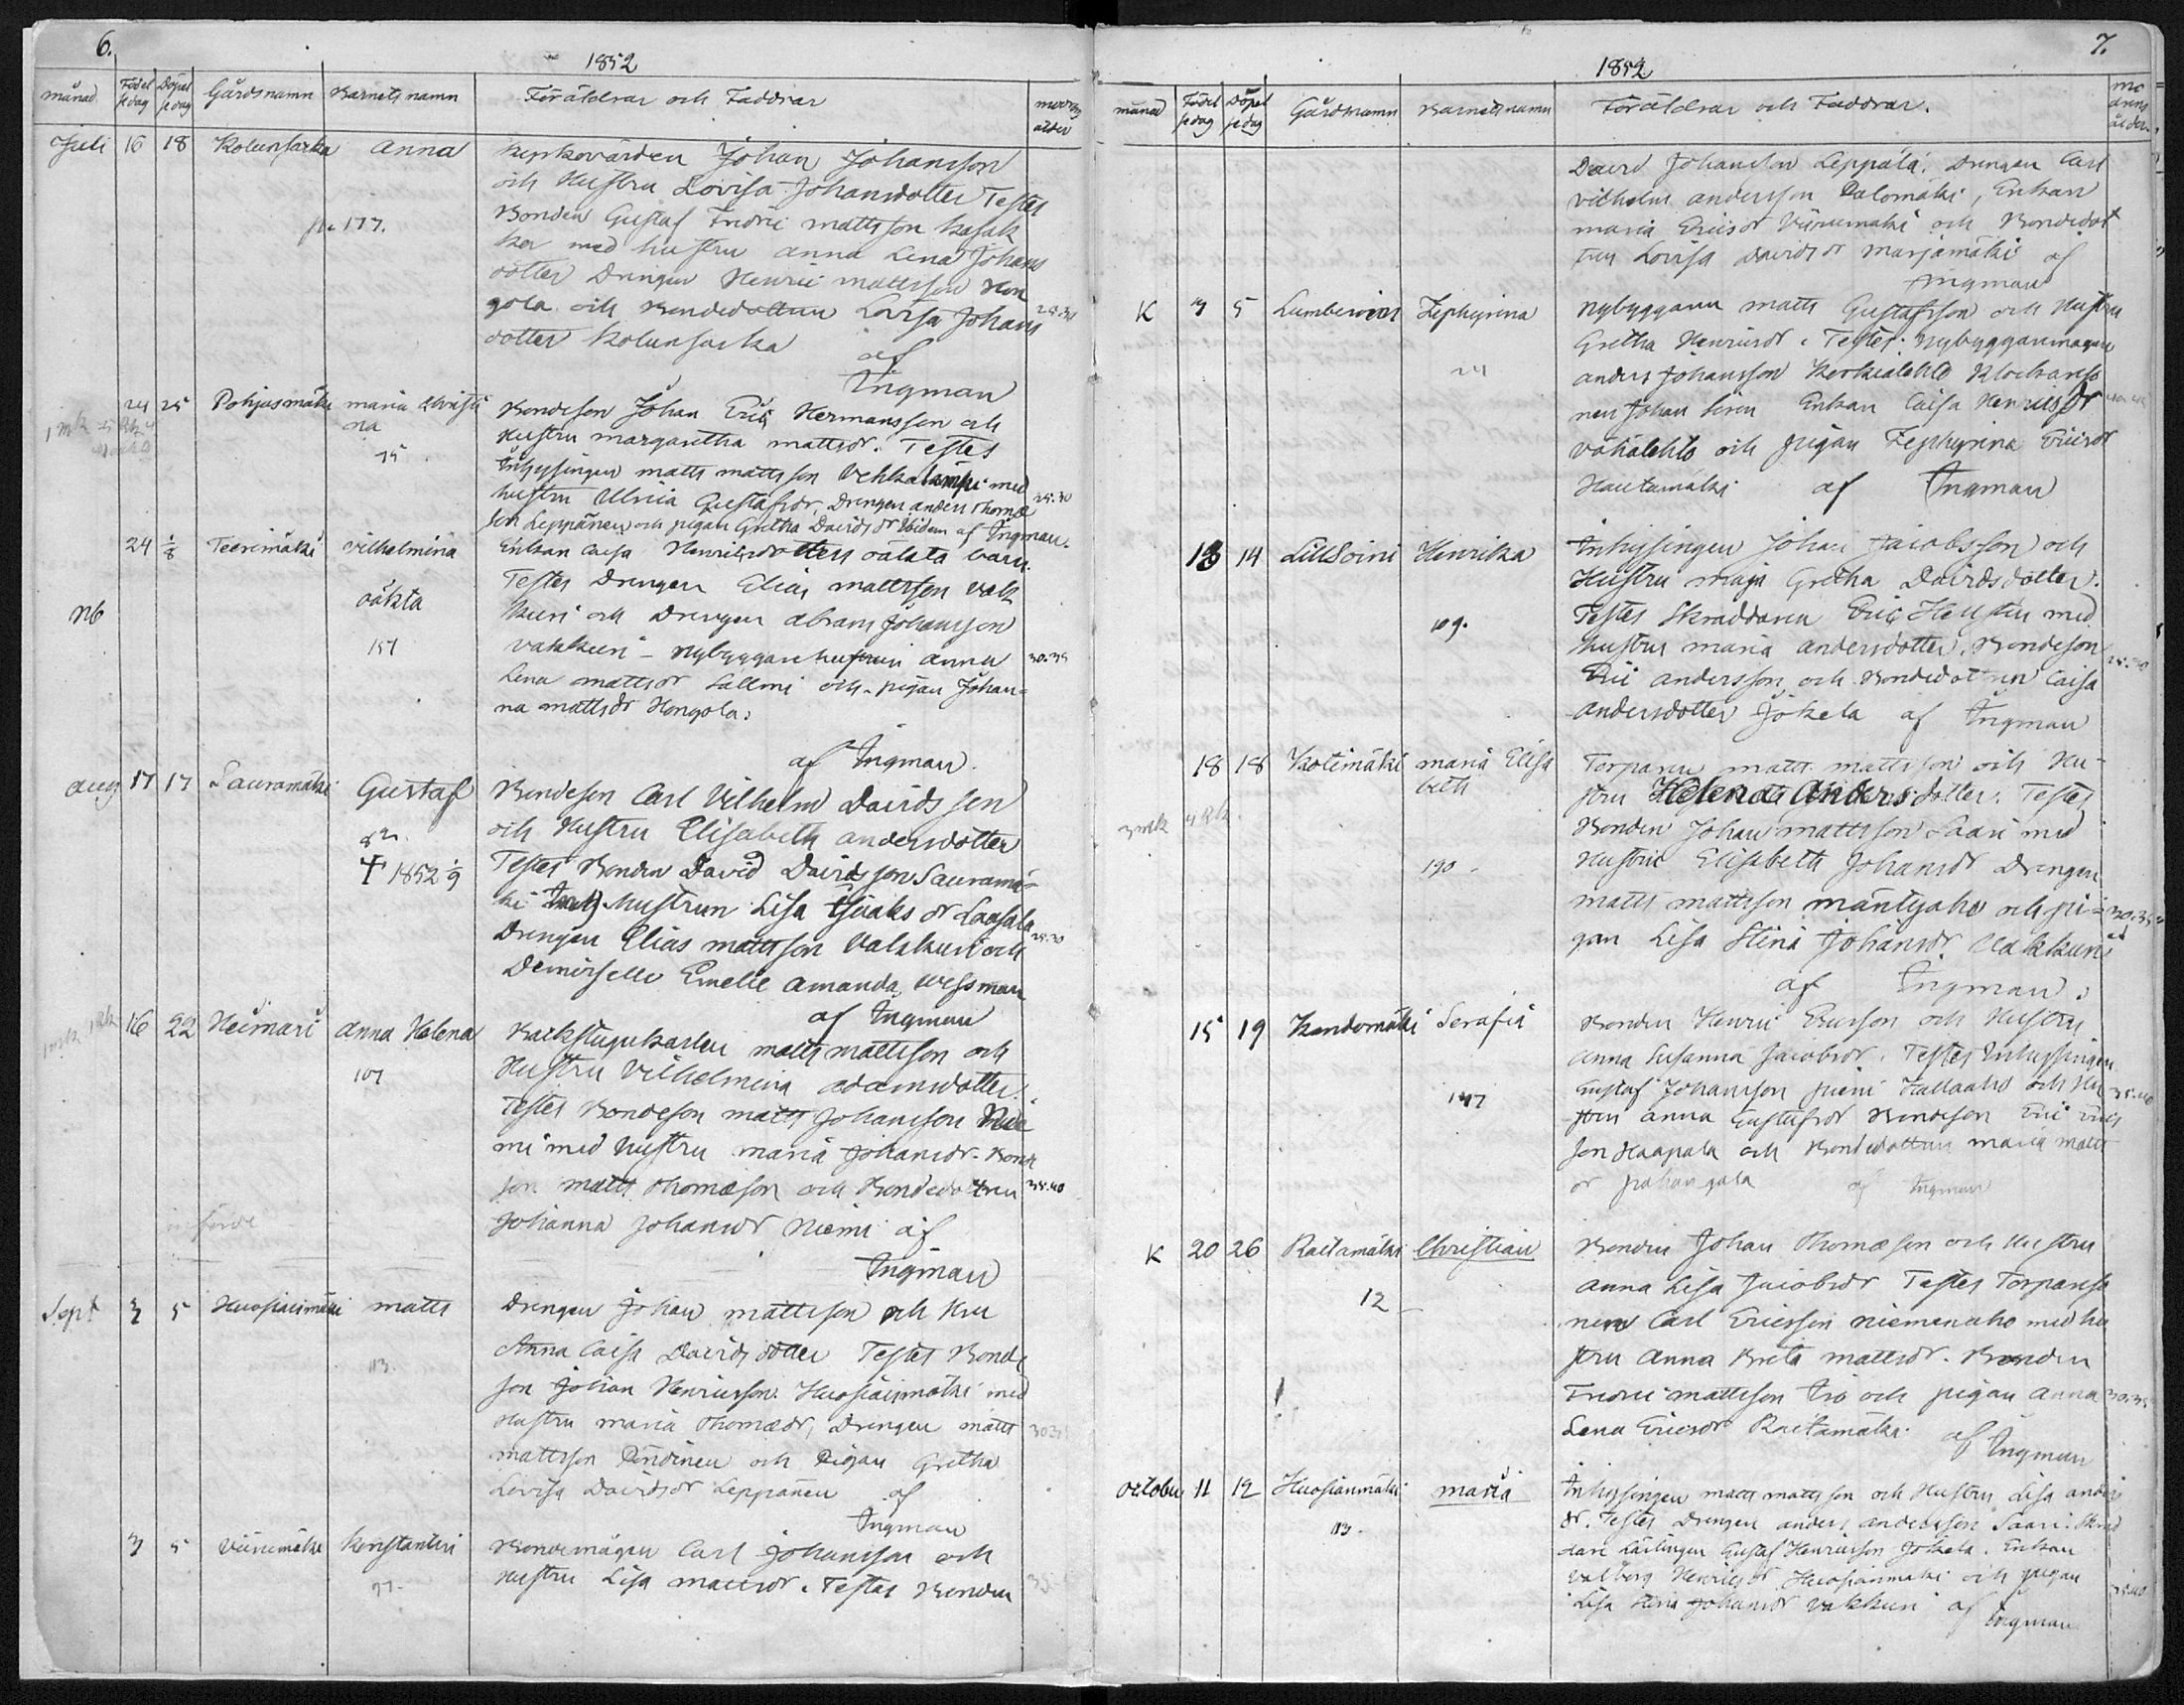 6.
1852
månad Födel sedag Döpel sedag Gårdsnamn Barnets namn Föräldrar och Faddrar modrens ålder
Juli 16 18 Kolunsarka Anna Johan Johansson
och Hustru Lovisa Johansdotter Testes
Bonden Gustaf Fredric Mattsson Kasak
p. 177.
ka med hustru Anna Lena Johans
dotter Drengen Henric Mattsson Hon
gola och Bondedottren Lovisa Johans
dotter Kolunsarka af
Ingman
24 25 Pohjasmäki Maria Christi
na
Bondeson Johan Eric Hermansson och
Hustru Margaretha Mattsdr. Testes
75
Inhysingen Matts Mattsson Vehkalampi med
hustru Ulrica Gustafsdr, Drengen Anders Thomæ 25.30
son Leppänen och pigan Gretha Davidsdr Ibidem af Ingman.
24 1/8 Teerimäki Vilhelmina Enkan Caisa Henricsdotters oäkta barn.
oäkta
Testes Drengen Elias Mattsson Vak
Nb
kuri och Drengen Abram Johansson
151
Vakkuri – Nybyggarehustrun Anna 30.35
Lena Mattsdr Sallmi och pigan Johan=
na Mattsdr Hongola.
af Ingman.
Aug 17 17 Sauramäki Gustaf Bondeson Carl Vilhelm Davidsson
och Hustru Elisabeth Andersdotter
82.
† 1852 1/9
Testes Bonden David Davidsson Sauramä=
ki Hustrun Lisa Isaaksdr Laasala
Drengen Elias Mattsson Vakkuri och
Demoiselle Emelie Amanda Wessman
af Ingman
16 22 Heimari Anna Helena Backstugukarlen Matts Mattsson och
Hustru Vilhelmina Adamsdotter.
107
Testes Bondeson Matts Johansson Nie
mi med hustru Maria Johansdr. Bonde
son Matts Thomæson och Bondedottren 35.40
Johanna Johansdr Niemi af
Ingman
införde
Sept 3 5 Huosiaismäki Matts Drengen Johan Mattsson och Hru
Anna Caisa Davidsdotter Testes Bonde
113.
son Johan Henricsson Huosiaismäki med
Hustru Maria Thomædr, Drengen Matts
Mattsson Pöndinen och Pigan Gretha
Lovisa Davidsdr Leppänen af
Ingman
3 5 Viinamäki Konstantin Bondemågen Carl Johansson och
Hustru Lisa Mattsdr. Testes Bonden
77.
7.
1852
månad Födel sedag Döpel sedag Gårdsnamn Barnets namn Föräldrar och Faddrar. mo drens ålder
David Johansson Leppälä. Drengen Carl
Vilhelm Andersson Palomäki, Enkan
Maria Ericsdr Viinamäki och Bondedot
tren Lovisa Davidsdr Marjamäki af
Ingman
K 3 5 Zephyrina Nybyggaren Matts Gustafsson och Hustru
Gretha Henricsdr. Testes: Nybyggaremågen
Anders Johansson Kerkkälehto Klockareso
nen Johan Siren Enkan Caisa Henricsdr
Vähälehto och pigan Zephyrina Ericsdr
Hautamäki af Ingman
13 14 LillSoini Henrika Inhysingen Johan Jacobsson och
Hustru Maja Gretha Davidsdotter.
109.
Testes Skräddaren Eric Hellsten med
hustru Maria Andersdotter, Bondeson
Eric Andersson och Bondedottren Caisa
Andersdotter Jokela af Ingman
18 18 Kotimäki Maria Elisa
beth
Torparen Matts Mattsson och Hu-
stru Helena Andersdotter. Testes
Bonden Johan Mattsson Saari med
190
Hustru Elisabeth Johansdr Drengen
Matts Mattsson Mäntyaho och pi- 30.35
gan Lisa Stina Johansdr Vakkuri
af Ingman.
15 19 Kandomäki Serafia Bonden Henric Ericsson och Hustru
Anna Susanna Jacobsdr. Testes Inhysingen
147
Gustaf Johansson Pieni Kallaaho och Hu 35.40
stru Anna Gustafsdr Bondeson Eric Erics
son Haapala och Bondedottren Maria Matts
dr Pahangala af Ingman
K 20 26 Raitamäki Christian Bonden Johan Thomæson och Hustru
Anna Lisa Jacobsdr Testes Torpareso
12
nen Carl Ericsson Niemenaho med hu
stru Anna Breta Mattsdr. Bonden
Fredric Mattsson Iso och pigan Anna 30.35
Lena Ericsdr Raitamäki af
Ingman
October 11 12 Huosianmäki Maria Inhysingen Matts Mattsson och Hustru Lisa Anders
113.
dr. Testes Drengen Anders Andersson Saari. Skräd
dare Lärlingen Gustaf Henricsson Jokela. Enkan
Valborg Henricsdr Huosianmäki och pigan
Lisa Stina Johansdr Vakkuri af 35.40
Ingman